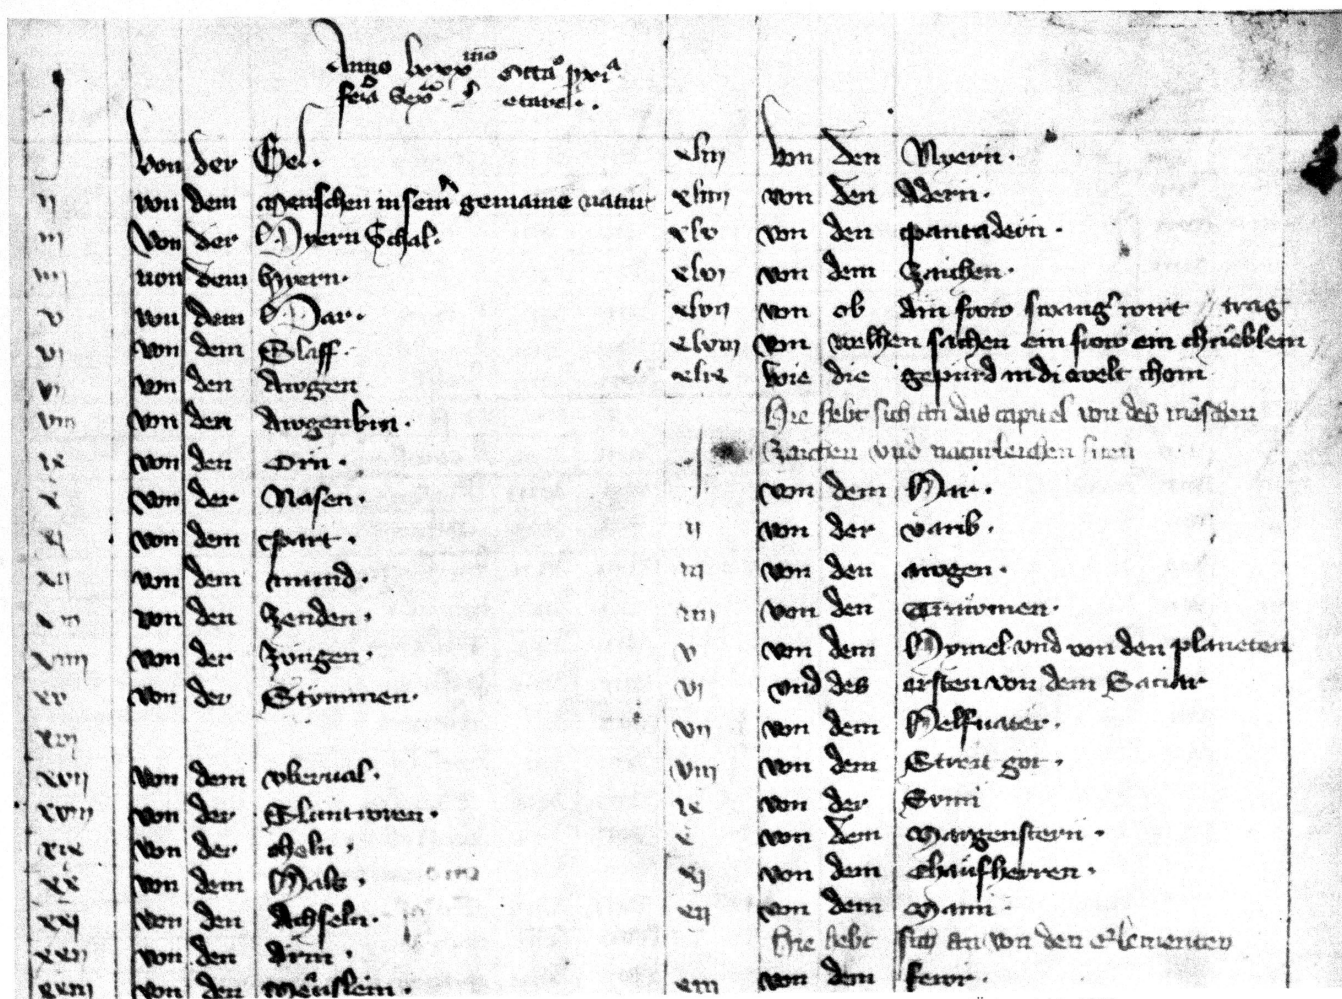 Anno lxxx
von der Sel.
ij von dem menschen in seinr gemaine natur
iij Von der Hyern Schal.
iiij von dem hyern.
v von dem Har.
vi von dem Slaff.
vij von den Awgen
viij von den Awgenbrin.
ix von den Orn.
x von der Nasen.
xj von dem part.
xij von dem mund.
xiij von den zenden.
xiiij von der zungen.
xv von der Stymmen.
xvj
xvij von dem vberual.
xviij von der Sluntroren.
xix von der cheln.
xx von dem Hals.
xxj von den Achseln.
xxij von den Arm.
xxiij von den Meuslein.
xliij Von den Nyern.
xliiij von den Adern.
xlv von den pantadern.
xlvj von dem zaichen.
xlvij von ob ain frow swangr wirt trag
xlviij von welhen sachen ein frow ein chneblein
xlix wie die gepurd in di welt chom
Hie hebt sich an das capitel von des menschen
zaichen vnd naturleichen siten
j von dem Har.
ij von der varib.
iij von den awgen.
iiij von den Trawmen.
v von dem Hymel vnd von den planeten
vj vnd des ersten von dem Satur
vij von dem Helfuater.
viij von dem Streit got.
ix von der Sunn
x von dem Margenstern.
xj von dem chaufherren.
xij von dem Mann.
Hie hebt sich an von den Elementen
xiij von dem fewr.